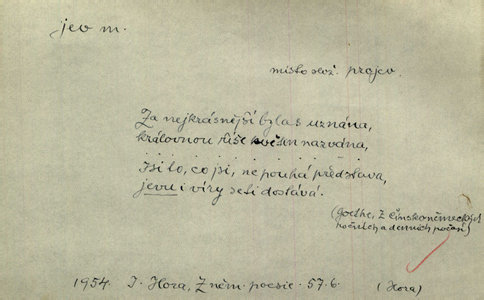 jev m.
místo slož. projev.
Za nejkrásnější bylas uznána,
královnou říše květin nazvána,
. . . . . . . . . . . . . . . . . .
Jsi to, co jsi, ne pouhá představa,
jevu i víry se ti dostává.
(Goethe, Z čínskoněmeckých
ročních a denních počas)
1954. J. Hora, Z něm. poesie. 57.6. (Hora)